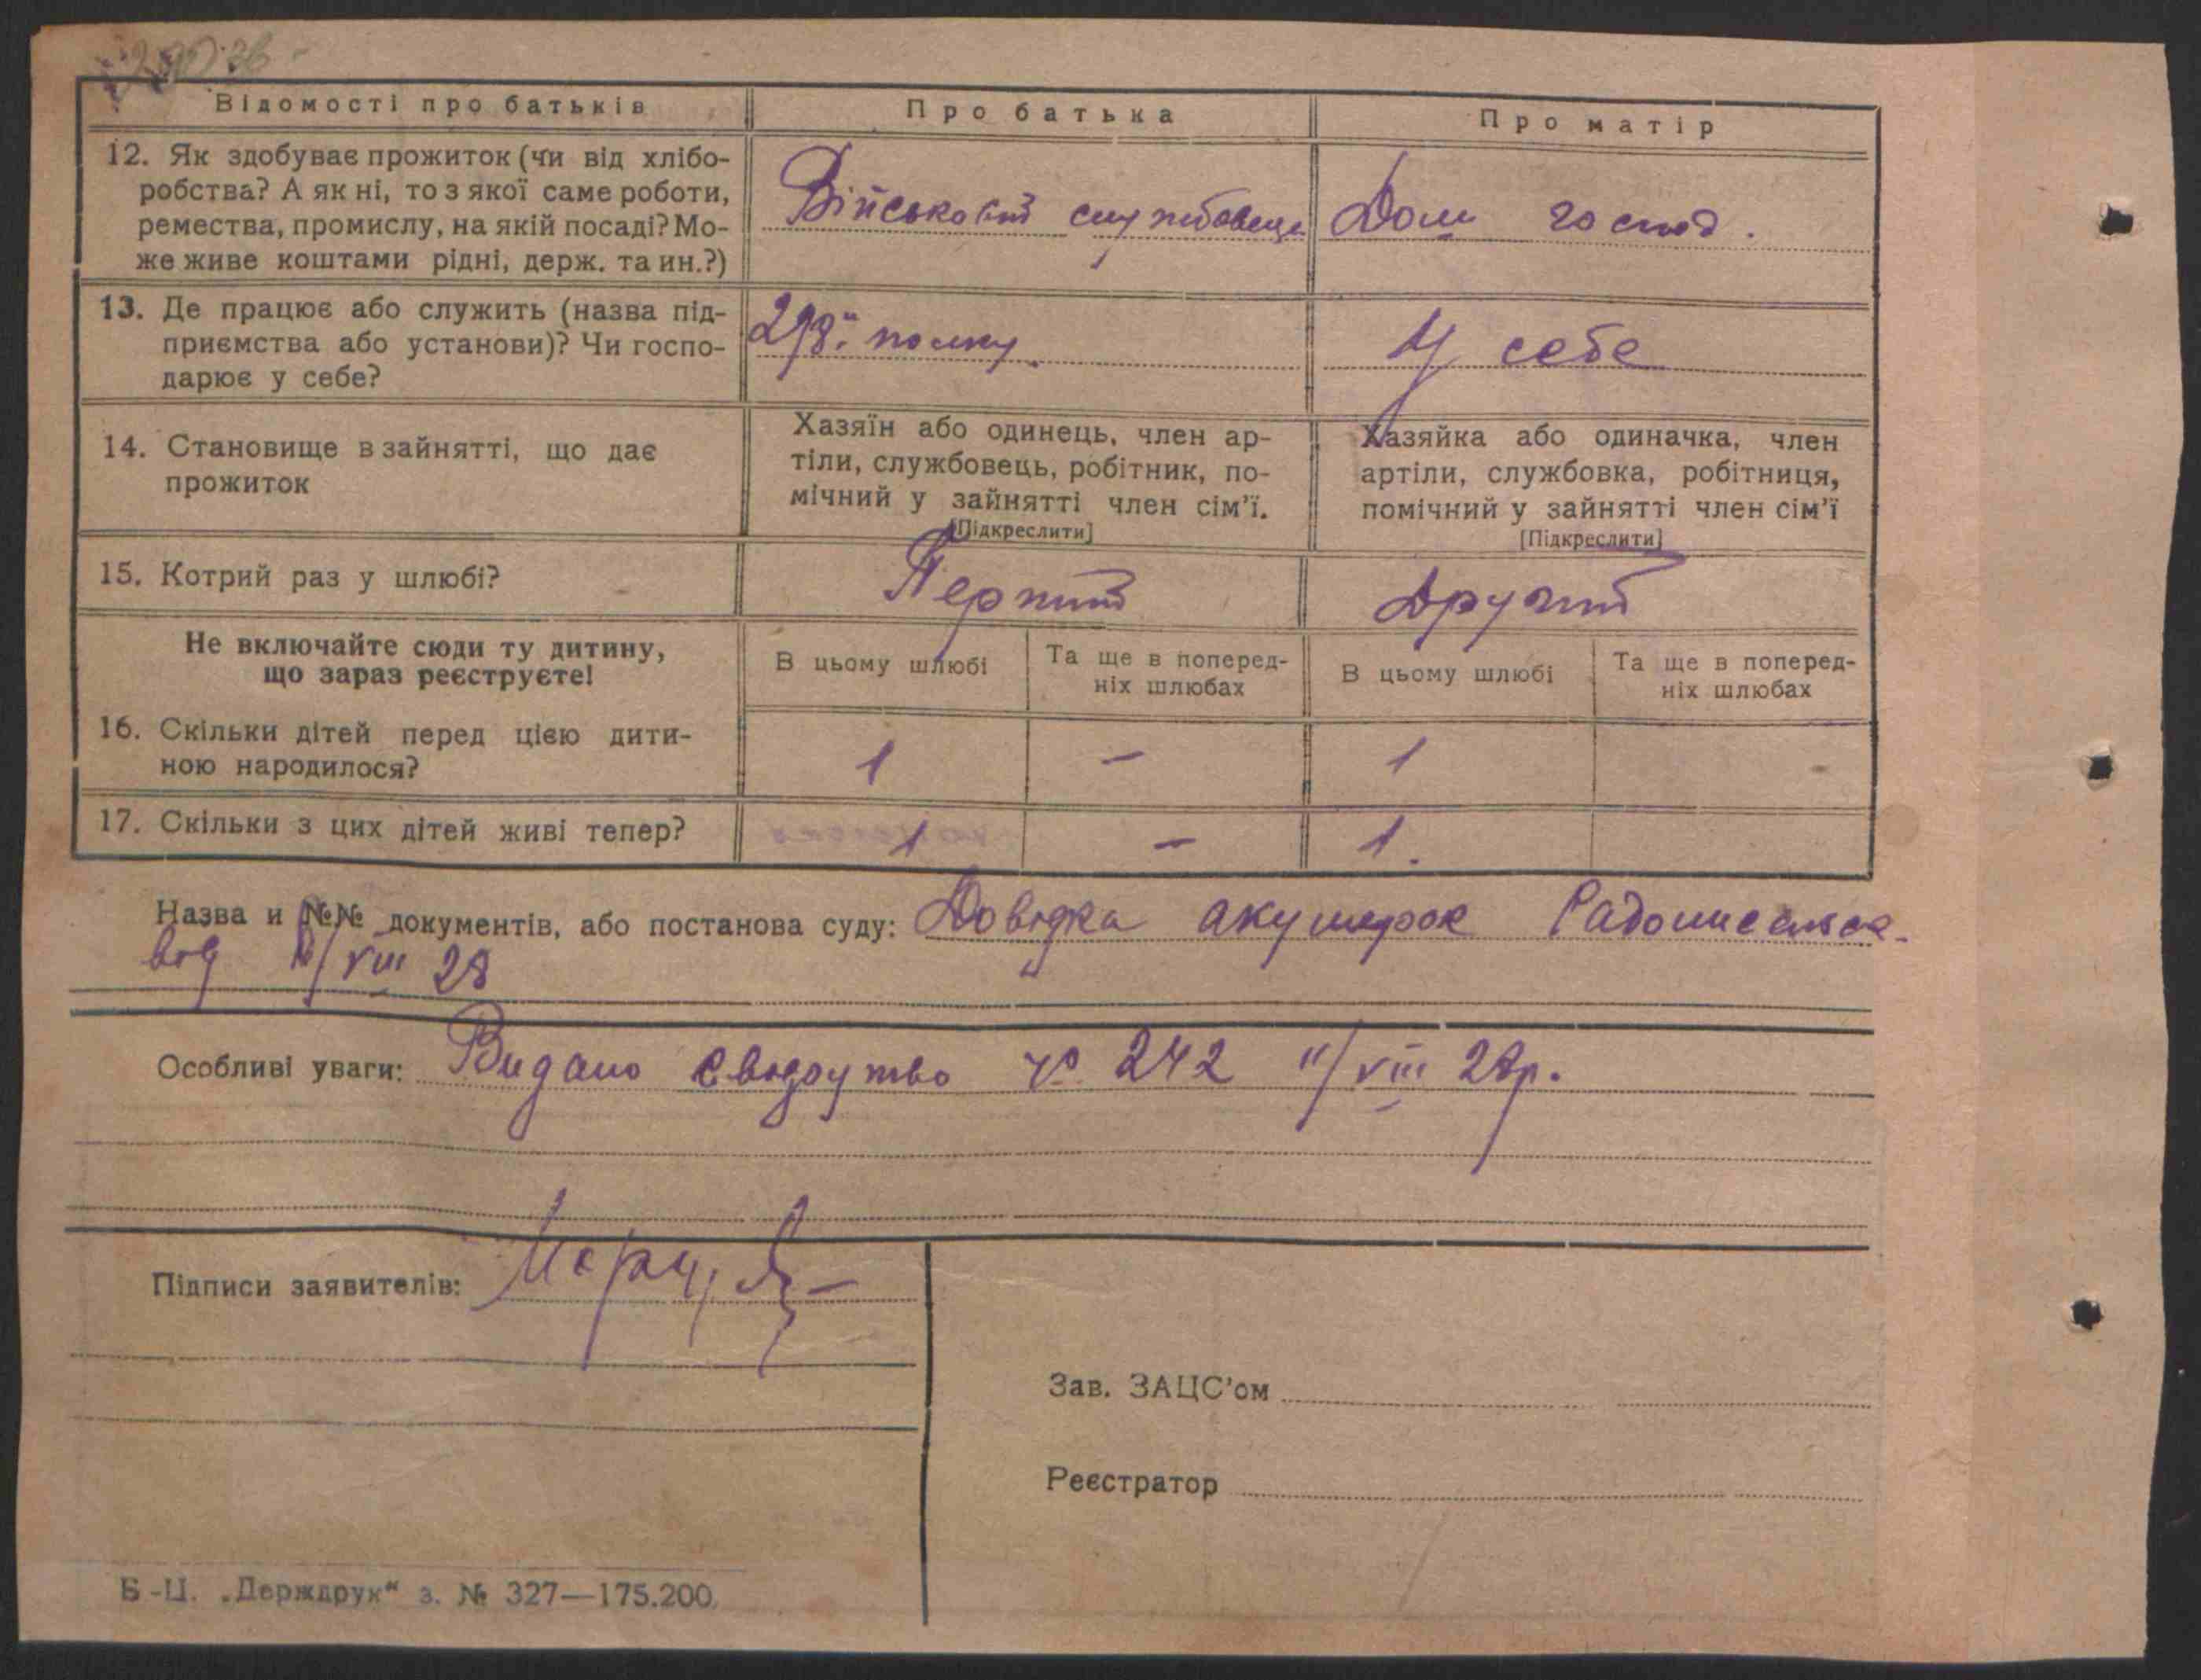 Відомості про батьків
Про батька
Про матір
12. Як здобуває прожиток (чи від хлібо-
робства? А як ні, то з якої саме роботи,
ремества, промислу, на якій посаді? Мо-
же живе коштами рідні, держ. та ин.?)
Військовий службовець
Дом господ.
13. Де працює або служить (назва під-
приємства або установи)? Чи госпо-
дарює у себе?
полку
У себе
14. Становище в зайнятті, що дає
прожиток
Хазяїн або одинець, член ар-
тіли, службовець, робітник, по-
мічний у зайнятті член сім'ї.
[Підкреслити]
Хазяйка або одиначка, член
артіли, службовка, робітниця,
помічний у зайнятті член сім'ї
[Підкреслити]
15. Котрий раз у шлюбі?
Перший
Другий
Не включайте сюди ту дитину,
що зараз реєструєте!
В цьому шлюбі
Та ще в поперед-
ніх шлюбах
В цьому шлюбі
Та ще в поперед-
ніх шлюбах
16. Скільки дітей перед цією дити-
ною народилося?
1
-
1
17. Скільки з цих дітей живі тепер?
1
-
1.
Назва и №№ документів, або постанова суду: Довідка акушерок Радомисльск.
від /VIII 28
Особливі уваги: Видано свідоцтво № 242 11/VIII 28р.
Підписи заявителів:
Зав. ЗАЦС'ом
Реєстратор
Б-Ц. „Держдрук" з. № 327—175.200.